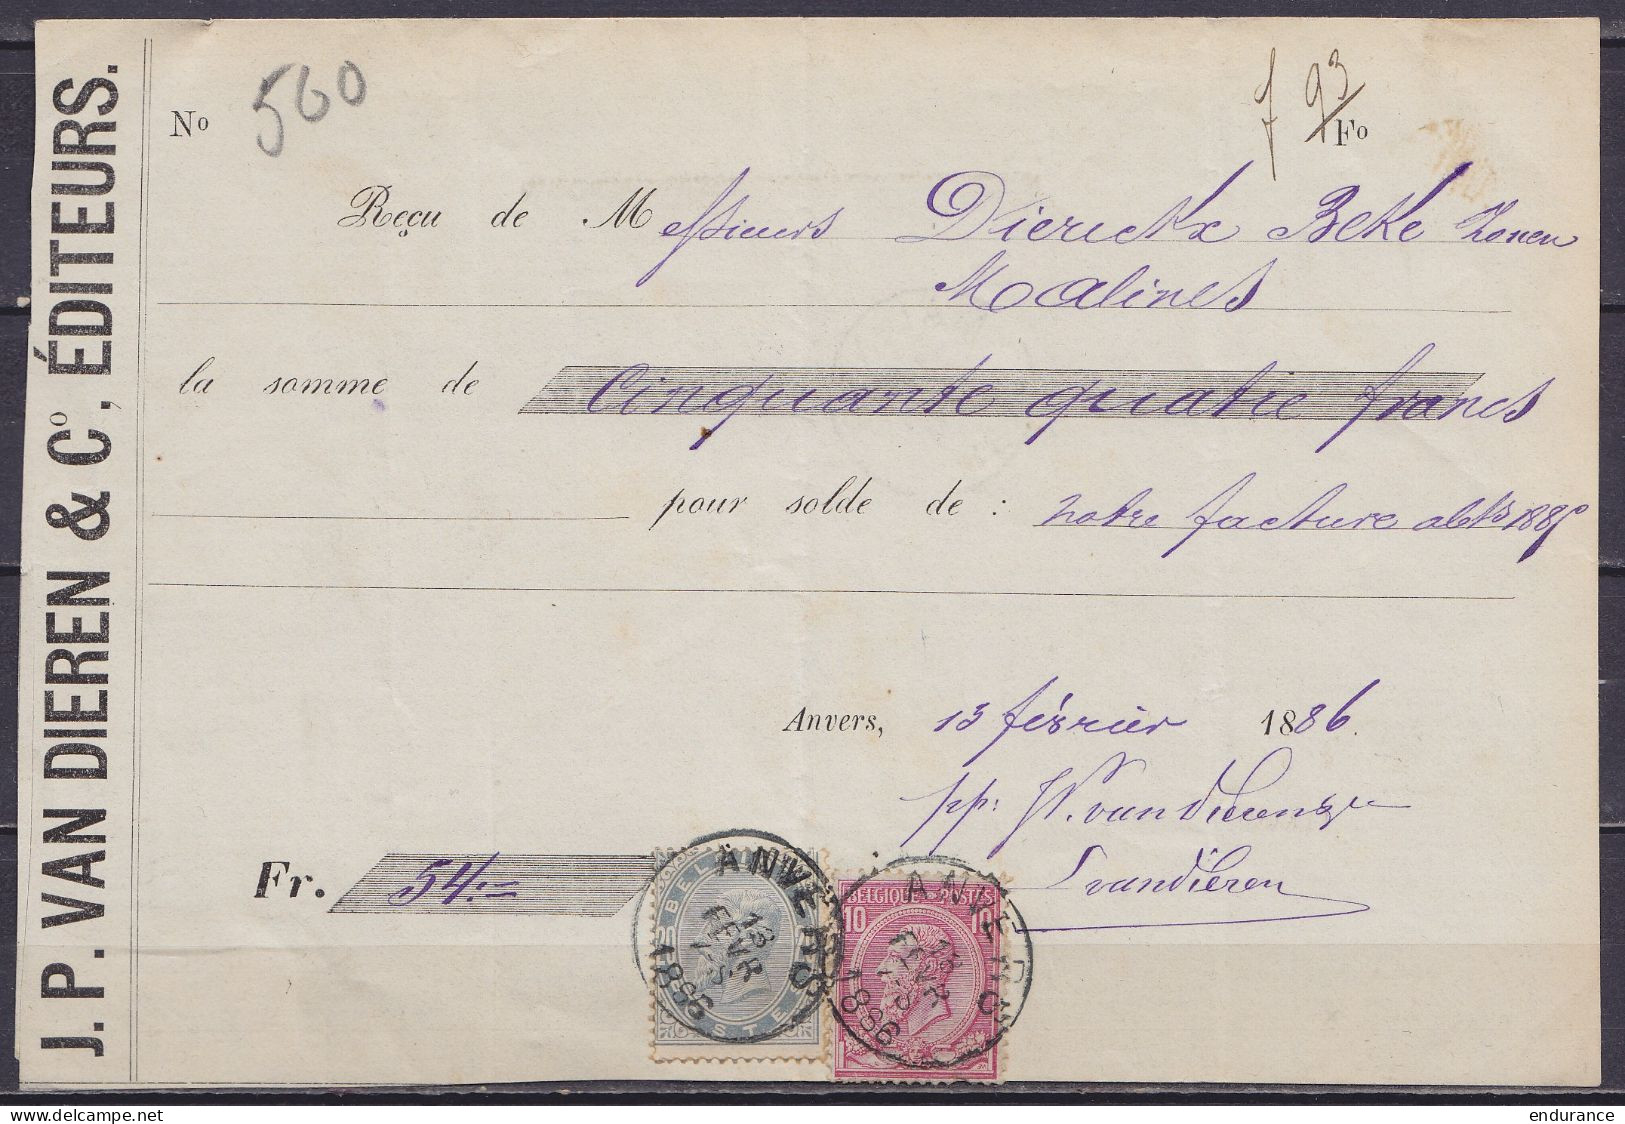 J. P. VAN DIEREN & Cº, ÉDITEURS.
Nº 560
f 93 Fº
Reçu de Messieurs Dierickx Beke Zonen
Malines
la somme de Cinquante quatre francs
pour solde de : notre facture 1885
Anvers, 13 février 1886.
pp: van Dieren
vandieren
Fr. 54.=
ANVERS
13
FEVR
7-S
1886
BEL
20
POSTES
ANVERS
13
FEVR
7-S
1886
BELGIQUE POSTES
10 10
endurance